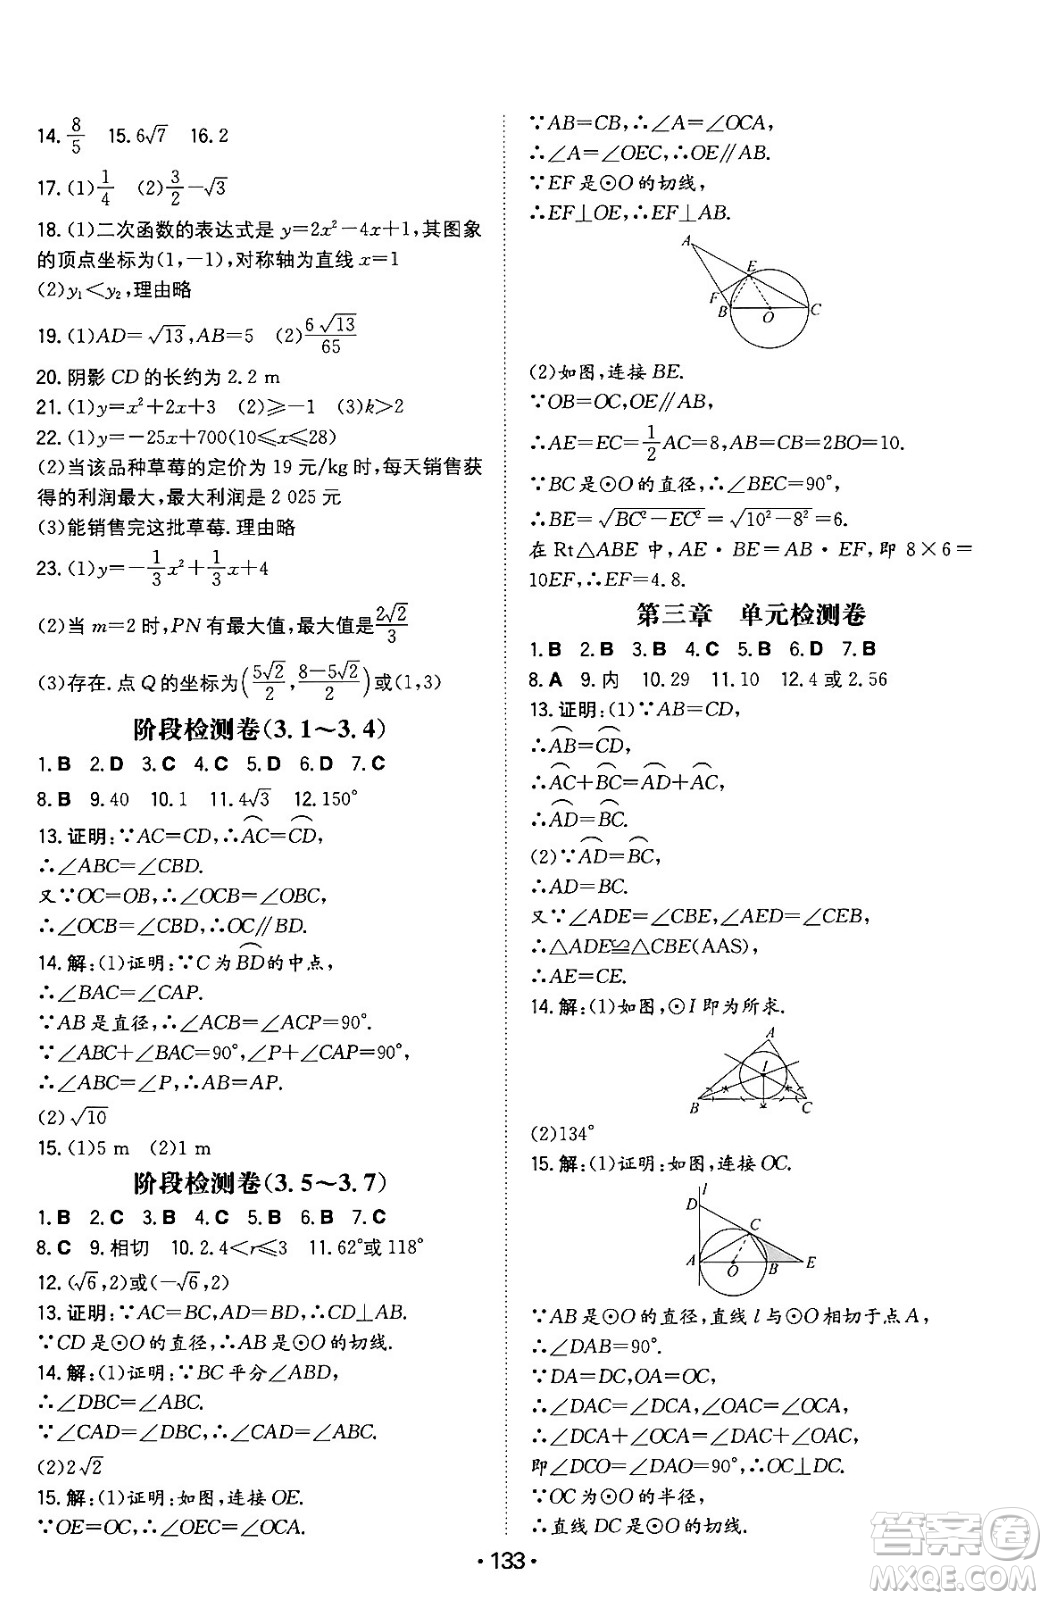 14. 8/5  15. 6√7  16. 2
17. (1) 1/4  (2) 3/2−√3
18. (1)二次函数的表达式是 y=2x²−4x+1,其图象
的顶点坐标为(1,−1),对称轴为直线 x=1
(2)y₁<y₂,理由略
19. (1)AD=√13,AB=5  (2) 6√13/65
20. 阴影 CD 的长约为 2.2 m
21. (1)y=x²+2x+3  (2)⩾−1  (3)k>2
22. (1)y=−25x+700(10⩽x⩽28)
(2)当该品种草莓的定价为 19 元/kg 时,每天销售获
得的利润最大,最大利润是 2 025 元
(3)能销售完这批草莓. 理由略
23. (1)y=−1/3x²+1/3x+4
(2)当 m=2 时,PN 有最大值,最大值是 2√2/3
(3)存在. 点 Q 的坐标为(5√2/2, (8−5√2)/2)或(1,3)
阶段检测卷(3.1～3.4)
1. B  2. D  3. C  4. C  5. D  6. D  7. C
8. B  9. 40  10. 1  11. 4√3  12. 150°
13. 证明:∵AC=CD,∴⌒AC=⌒CD,
∴∠ABC=∠CBD.
又∵OC=OB,∴∠OCB=∠OBC,
∴∠OCB=∠CBD,∴OC∥BD.
14. 解:(1)证明:∵C 为⌒BD的中点,
∴∠BAC=∠CAP.
∵AB 是直径,∴∠ACB=∠ACP=90°.
∵∠ABC+∠BAC=90°,∠P+∠CAP=90°,
∴∠ABC=∠P,∴AB=AP.
(2)√10
15. (1)5 m  (2)1 m
阶段检测卷(3.5～3.7)
1. B  2. C  3. B  4. C  5. B  6. B  7. C
8. C  9. 相切  10. 2.4<r⩽3  11. 62°或 118°
12. (√6,2)或(−√6,2)
13. 证明:∵AC=BC,AD=BD,∴CD⊥AB.
∵CD 是⊙O 的直径,∴AB 是⊙O 的切线.
14. 解:(1)证明:∵BC 平分∠ABD,
∴∠DBC=∠ABC.
∵∠CAD=∠DBC,∴∠CAD=∠ABC.
(2)2√2
15. 解:(1)证明:如图,连接 OE.
∵OE=OC,∴∠OEC=∠OCA.
∵AB=CB,∴∠A=∠OCA,
∴∠A=∠OEC,∴OE∥AB.
∵EF 是⊙O 的切线,
∴EF⊥OE,∴EF⊥AB.
A
E
F
B
O
C
(2)如图,连接 BE.
∵OB=OC,OE∥AB,
∴AE=EC=1/2AC=8,AB=CB=2BO=10.
∵BC 是⊙O 的直径,∴∠BEC=90°,
∴BE=√(BC²−EC²)=√(10²−8²)=6.
在 Rt△ABE 中,AE·BE=AB·EF,即 8×6=
10EF,∴EF=4.8.
第三章 单元检测卷
1. B  2. B  3. B  4. C  5. B  6. D  7. B
8. A  9. 内  10. 29  11. 10  12. 4 或 2.56
13. 证明:(1)∵AB=CD,
∴⌒AB=⌒CD,
∴⌒AC+⌒BC=⌒AD+⌒AC,
∴⌒AD=⌒BC.
(2)∵⌒AD=⌒BC,
∴AD=BC.
又∵∠ADE=∠CBE,∠AED=∠CEB,
∴△ADE≌△CBE(AAS),
∴AE=CE.
14. 解:(1)如图,⊙I 即为所求.
A
I
B
C
(2)134°
15. 解:(1)证明:如图,连接 OC.
l
D
C
A
O
B
E
∵AB 是⊙O 的直径,直线 l 与⊙O 相切于点 A,
∴∠DAB=90°.
∵DA=DC,OA=OC,
∴∠DAC=∠DCA,∠OAC=∠OCA,
∴∠DCA+∠OCA=∠DAC+∠OAC,
即∠DCO=∠DAO=90°,∴OC⊥DC.
∵OC 为⊙O 的半径,
∴直线 DC 是⊙O 的切线.
·133·
答案卷
MXQE.COM